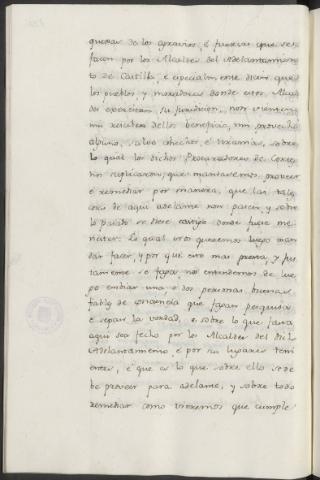 querar de los agravios, é fuerzas que se
facen por los Alcaldes del Adelantamien
to de Castilla, é especialmente diz que
los pueblos y moradores donde estos Alcal
des exercitan su jurisdicion, non vienen
nin reciben dellos beneficio, nin provecho
alguno, salvo cohechos, é
lo qual los dichos Procuradores de Cortes
nos suplicaron, que mandasemos proveer
é remediar por manera, que las tales
cosas de aqui adelante non pasen y sobre
lo pasado se diese castigo donde fuere me
nester: Lo qual nos queremos luego man
dar facer, y por que esto mas presta, y jus
tamente se faga, nos entendemos de lue
go enbiar una o dos personas buenas
fiables de conciencia que fagan pesquisa
é sepan la verdad, sobre lo que fasta
aqui sea fecho por los Alcaldes del dicho
Adelantamiento, é por sus lugares tení
entes, é que es lo que sobre ello se de
be proveer para adelante, y sobre todo
remediar como vieremos que cumple